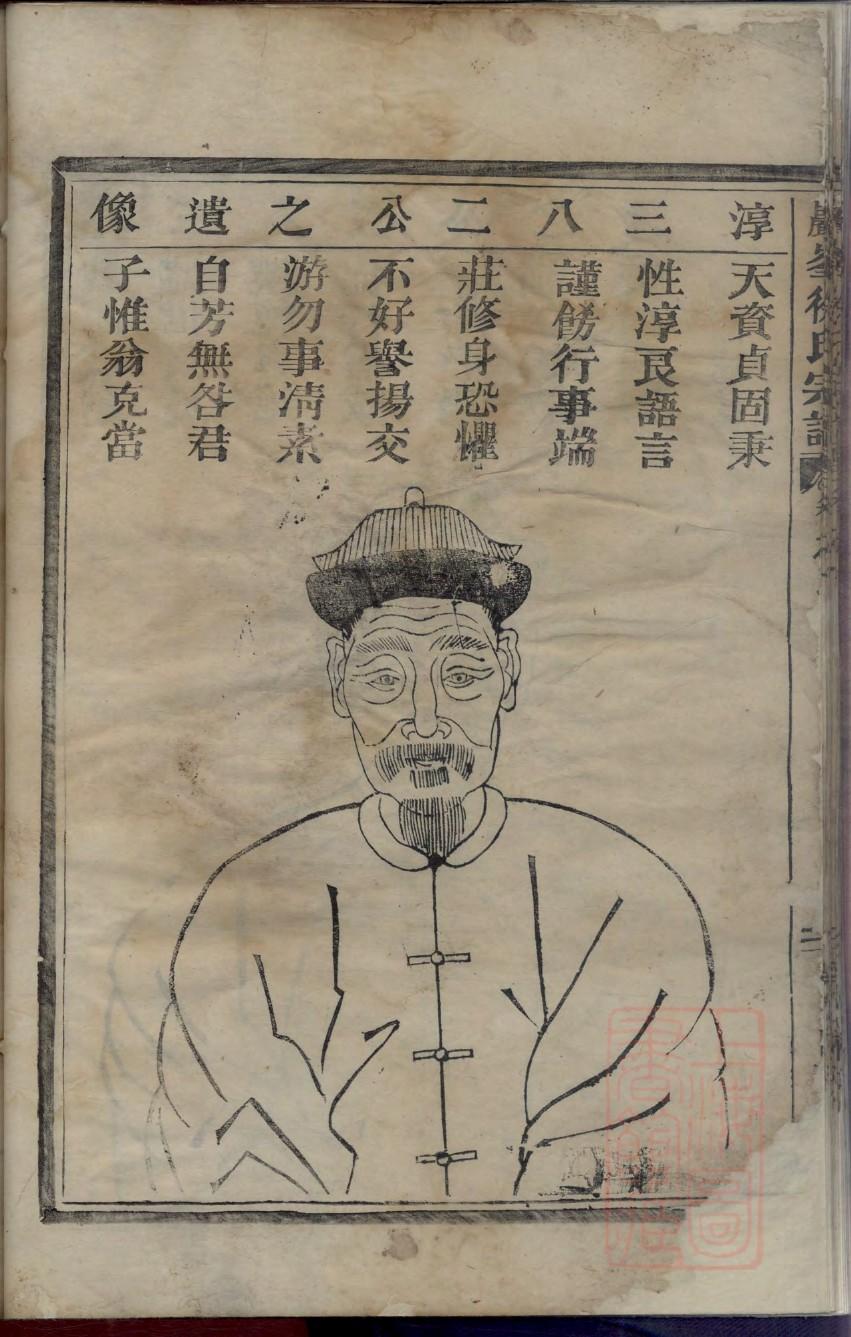 淳三八二公之遺像
天資貞固秉
性淳良語言
謹飭行事端
莊修身恐懼
不好譽揚交
游勿事清素
自芳無咎君
子惟翁克當
徐氏宗譜
二